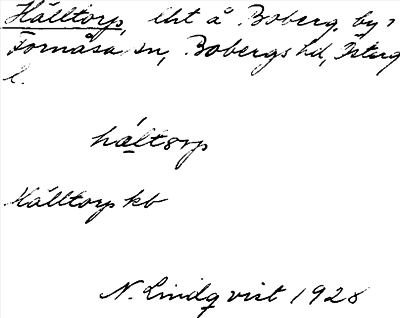 Hålltorp, lht å Boberg, by i
Fornåsa sn, Bobergs hd, Österg
l.
háltorp
Hålltorp kb
N. Lindqvist 1928